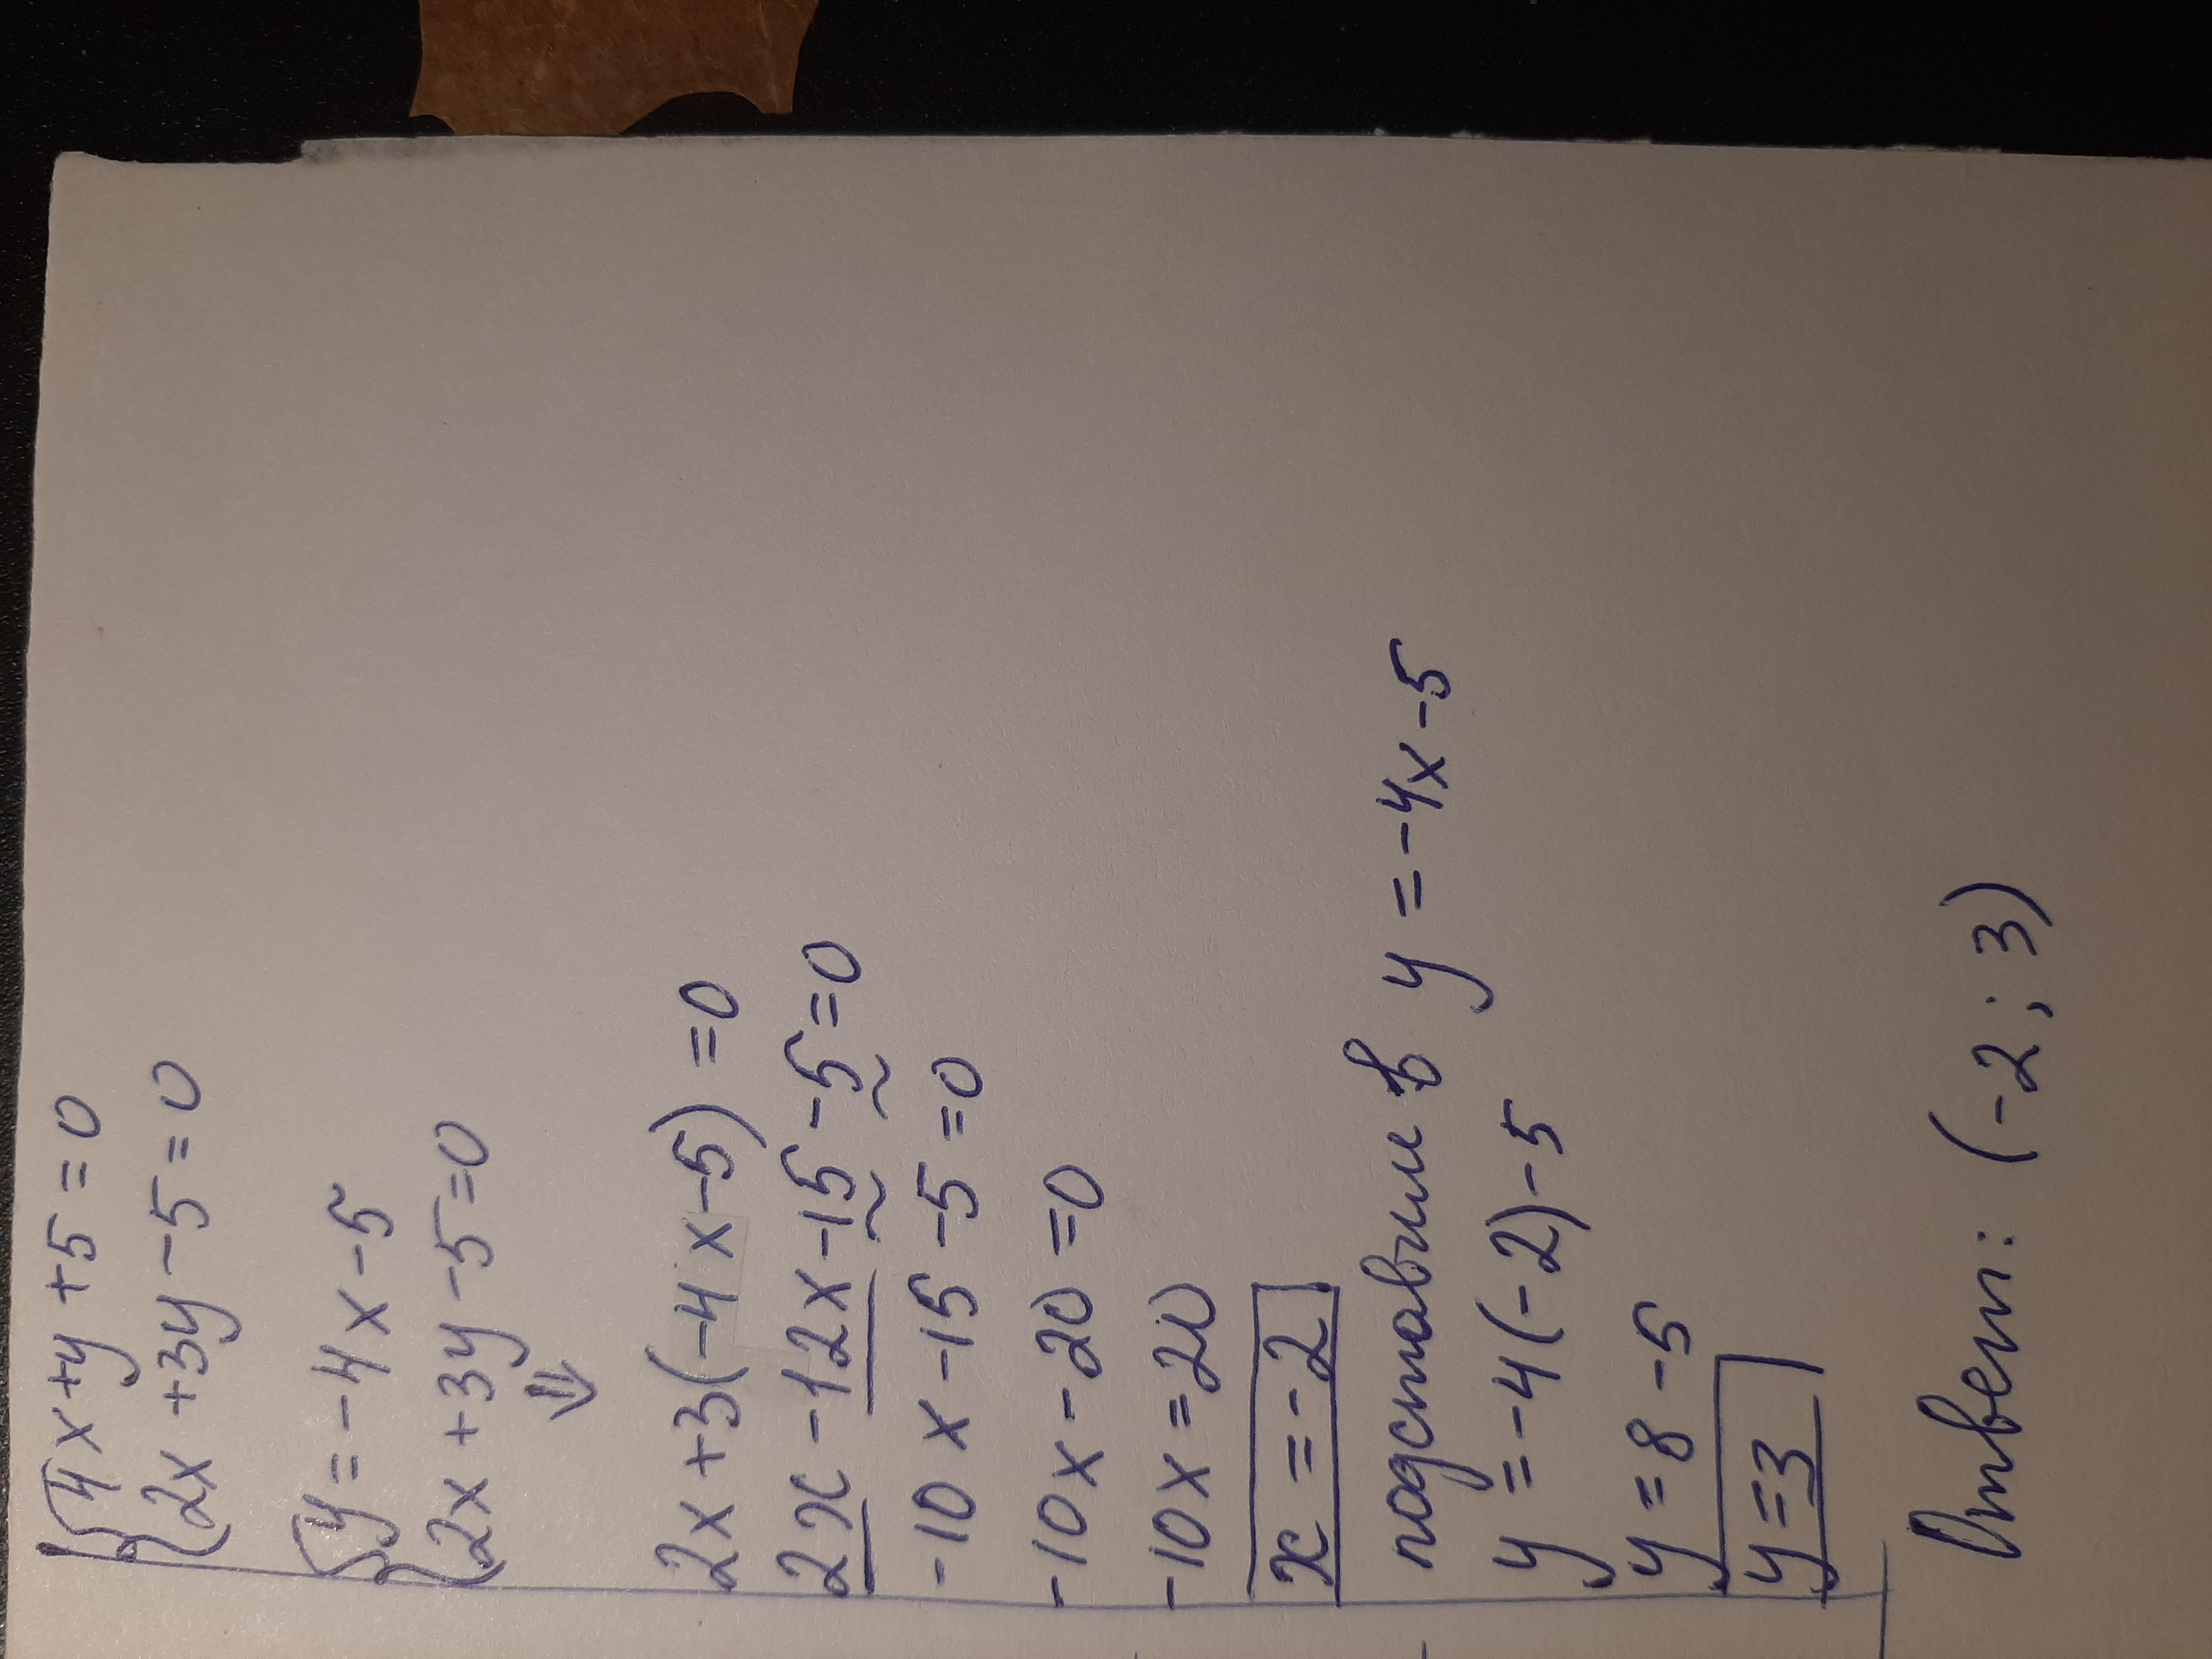 {4x+y+5=0
{2x+3y-5=0
{y=-4x-5
{2x+3y-5=0
⇓
2x+3(-4x-5)=0
2x-12x-15-5=0
-10x-15-5=0
-10x-20=0
-10x=20
x=-2
подставим в y=-4x-5
y=-4(-2)-5
y=8-5
y=3
Ответ: (-2; 3)